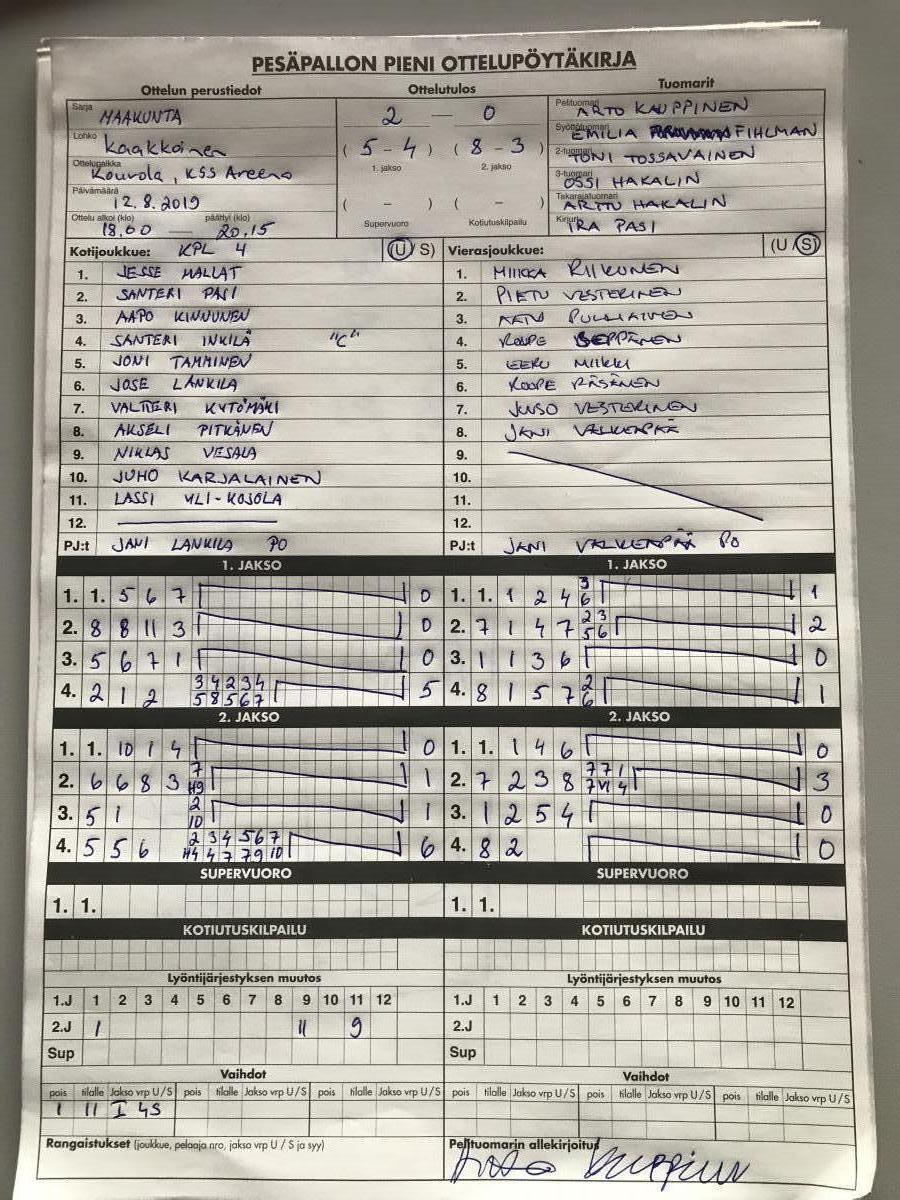 PESÄPALLON PIENI OTTELUPÖYTÄKIRJA
Ottelun perustiedot Ottelutulos Tuomarit
Sarja MAAKUNTA 2 — 0 Pelituomari ARTO KAUPPINEN
Lohko Kaakkoinen Syöttötuomari EMILIA FIHLMAN
Ottelupaikka Kouvola, KSS Areena ( 5 - 4 ) ( 8 - 3 ) 2-tuomari TONI TOSSAVAINEN
1. jakso 2. jakso 3-tuomari OSSI HAKALIN
Päivämäärä 12.8.2019 ( - ) ( - ) Takarajatuomari ARTTU HAKALIN
Ottelu alkoi (klo) 18.00 — päättyi (klo) 20.15 Supervuoro Kotiutuskilpailu Kirjuri IRA PASI
Kotijoukkue: KPL 4 (U/S) Vierasjoukkue: (U/S)
1. JESSE MALLAT 1. MIIKKA RIIKONEN
2. SANTERI PASI 2. PIETU VESTERINEN
3. AAPO KINNUNEN 3.
4. SANTERI INKILÄ "C" 4. ROOPE SEPPÄNEN
5. JONI TAMMINEN 5. EERU MIIKKI
6. JOSE LANKILA 6. ROOPE RÄSÄNEN
7. VALTTERI KYTÖMÄKI 7. JUUSO VESTERINEN
8. AKSELI PITKÄNEN 8. JANI VALKEAPÄÄ
9. NIKLAS VESALA 9.
10. JUHO KARJALAINEN 10.
11. LASSI YLI-KOJOLA 11.
12. 12.
PJ:t JANI LANKILA PO PJ:t JANI VALKEAPÄÄ PO
1. JAKSO 1. JAKSO
1. 1. 5 6 7 0 1. 1. 1 2 4 6 3 6 1
2. 8 8 11 3 0 2. 7 1 4 7 2 3 5 6 2
3. 5 6 7 1 0 3. 1 1 3 6 0
4. 2 1 2 3 4 2 3 4 5 8 5 6 7 5 4. 8 1 5 7 2 6 1
2. JAKSO 2. JAKSO
1. 1. 10 1 4 0 1. 1. 1 4 6 0
2. 6 6 8 3 7 H9 1 2. 7 2 3 8 7 7 1 3
3. 5 1 2 10 1 3. 1 2 5 4 0
4. 5 5 6 2 3 4 5 6 7 H4 4 7 7 9 10 6 4. 8 2 0
SUPERVUORO SUPERVUORO
1. 1. 1. 1.
KOTIUTUSKILPAILU KOTIUTUSKILPAILU
Lyöntijärjestyksen muutos Lyöntijärjestyksen muutos
1.J 1 2 3 4 5 6 7 8 9 10 11 12 1.J 1 2 3 4 5 6 7 8 9 10 11 12
2.J 1 11 9 2.J
Sup Sup
Vaihdot Vaihdot
pois tilalle Jakso vrp U/S pois tilalle Jakso vrp U/S pois tilalle Jakso vrp U/S pois tilalle Jakso vrp U/S pois tilalle Jakso vrp U/S pois tilalle Jakso vrp U/S
1 11 I 4S
Rangaistukset (joukkue, pelaaja nro, jakso vrp U / S ja syy) Pelituomarin allekirjoitus